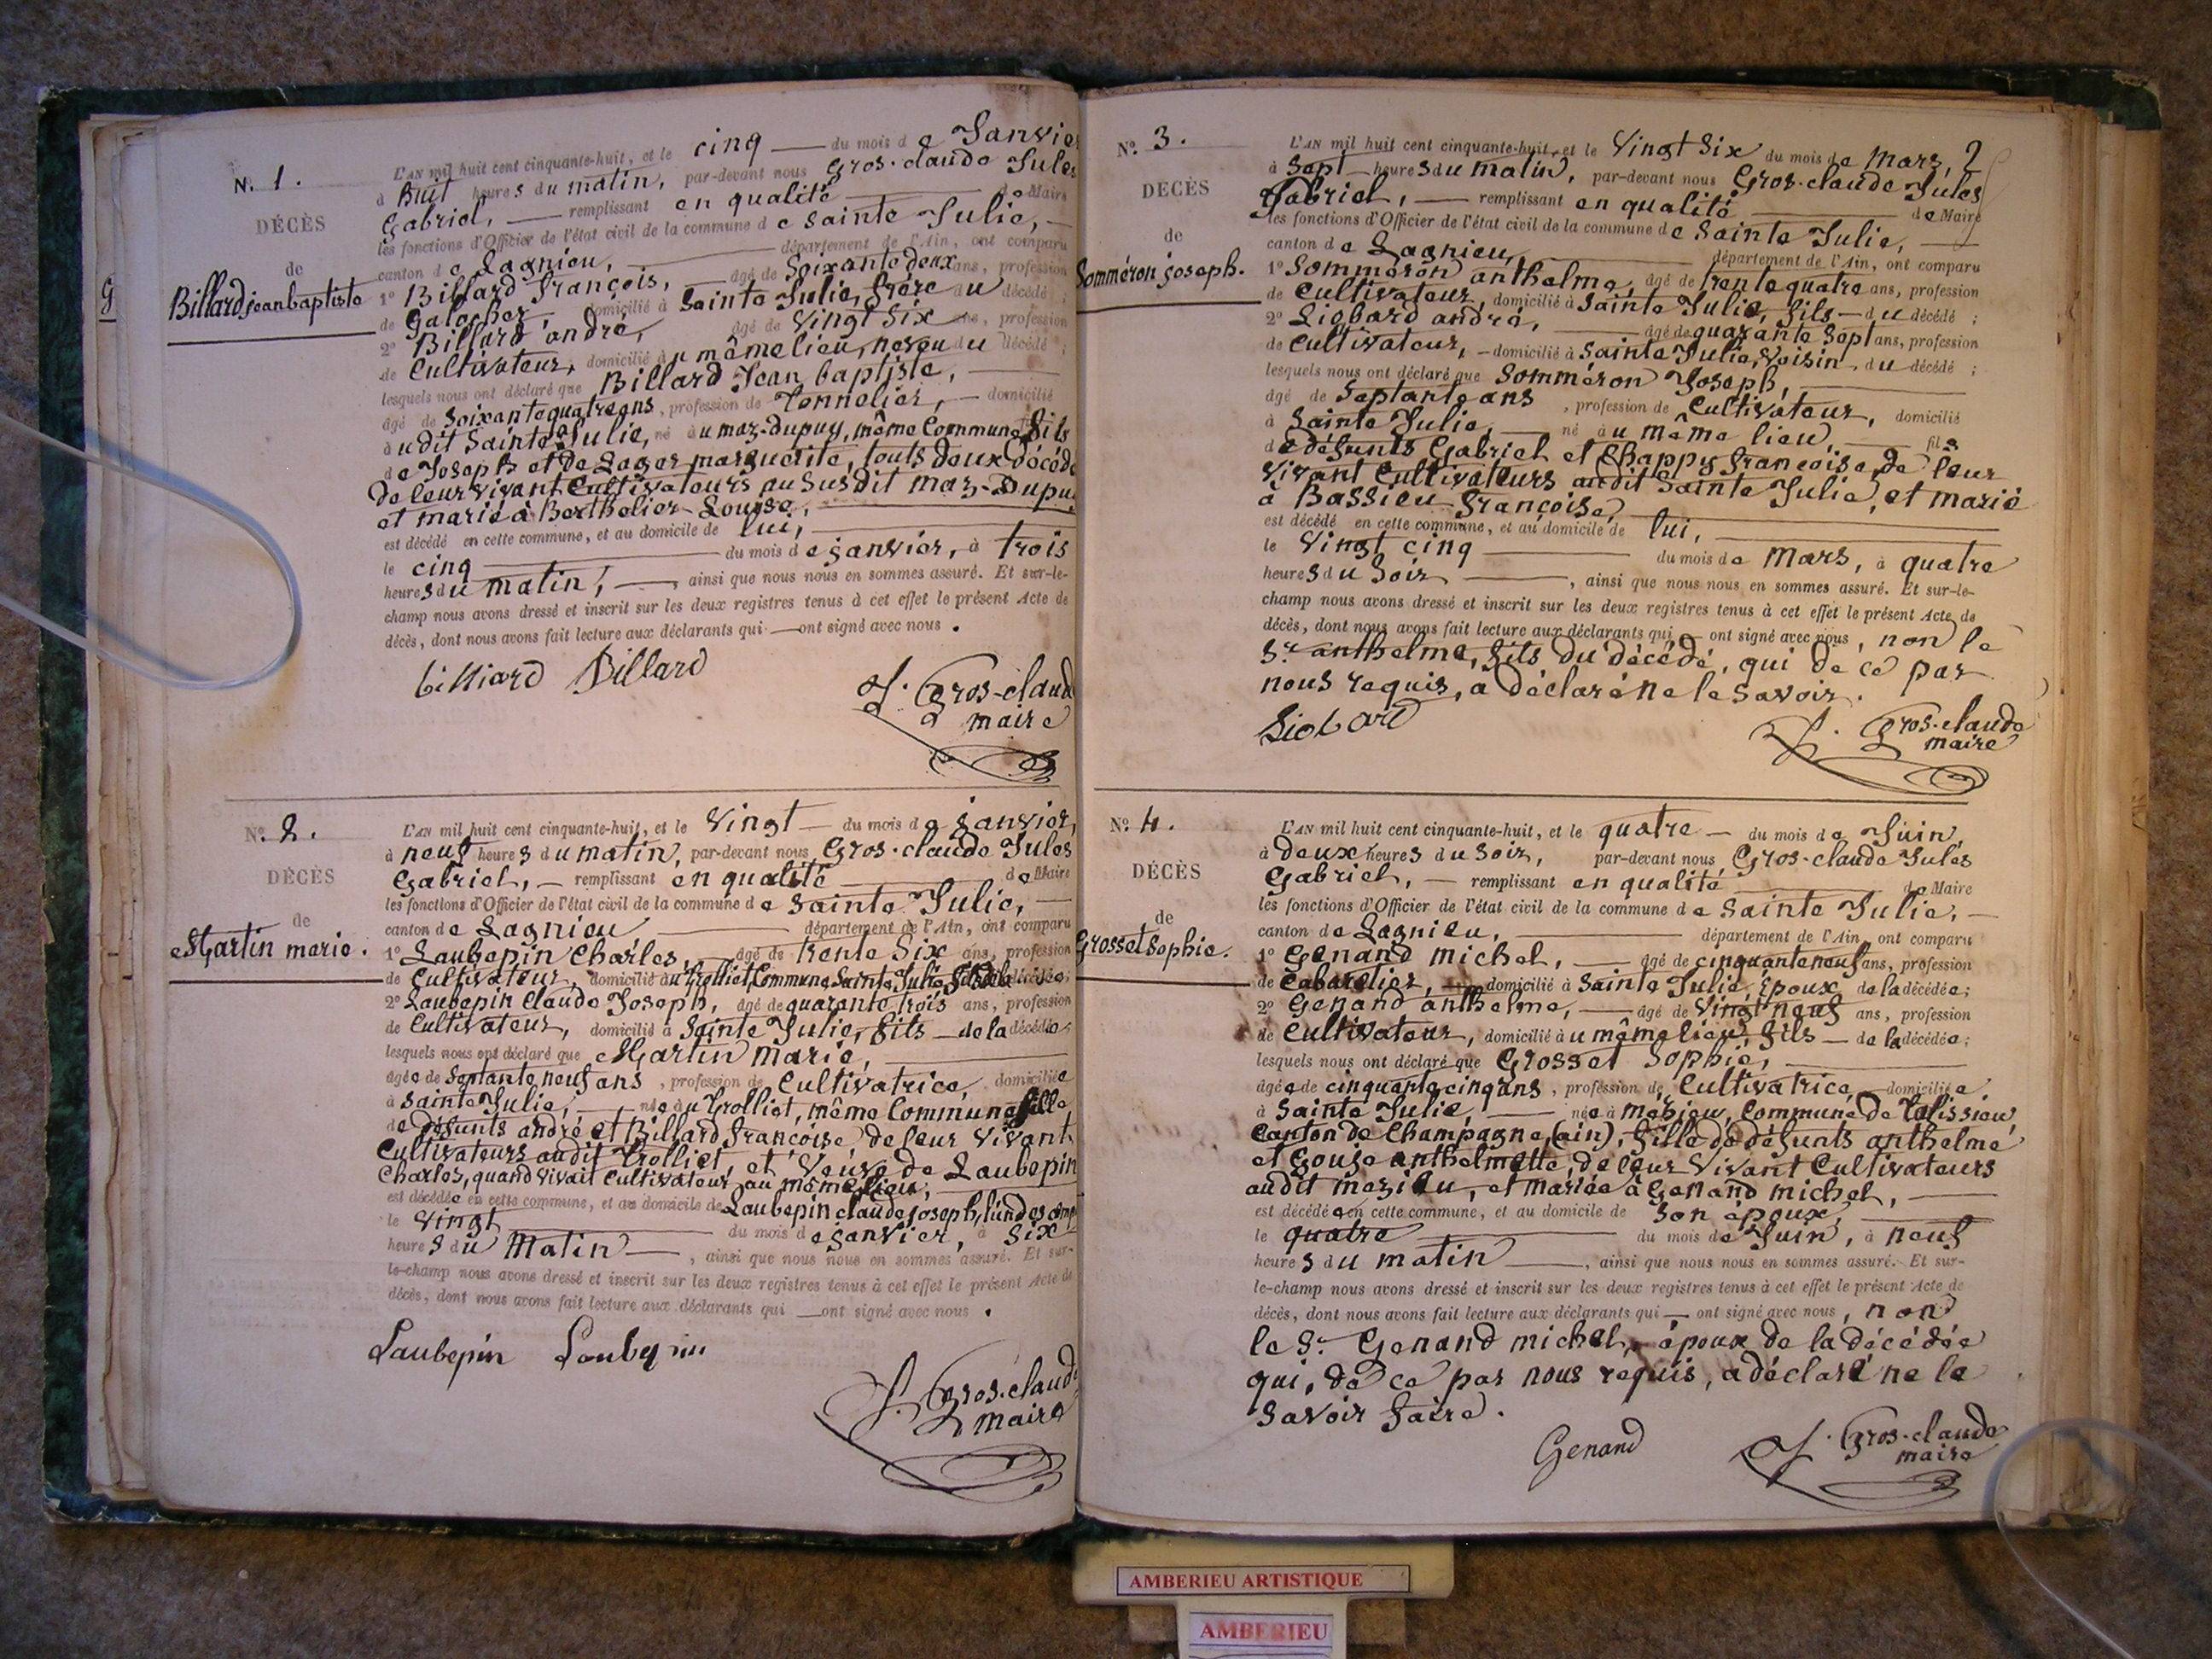 N. 1.
DÉCÈS
de
Billard jean baptiste
L'AN mil huit cent cinquante-huit, et le cinq — du mois de Janvier
à huit heures du matin, par-devant nous Gros-claude Jules
Gabriel, — remplissant en qualité — de Maire
les fonctions d'Officier de l'état civil de la commune de Sainte Julie, —
canton de Lagnieu, — département de l'Ain, ont comparu
1° Billard françois, — âgé de Soixante deux ans, profession
de Galocher, domicilié à Sainte Julie, frère du décédé ;
2° Billard andré, âgé de Vingt Six ans, profession
de Cultivateur, domicilié au même lieu, neveu du décédé ;
lesquels nous ont déclaré que Billard Jean baptiste, —
âgé de Soixante quatre ans, profession de Tonnelier, — domicilié
à udit Sainte Julie, né au maz-Dupuy, même Commune, fils
de Joseph et de Lager marguerite, touts deux décédé
de leur vivant Cultivateurs au susdit maz-Dupuy
et marié à Berthelier Louise, —
est décédé en cette commune, et au domicile de lui, —
le cinq — du mois de janvier, à trois
heures du matin, — , ainsi que nous nous en sommes assuré. Et sur-le-
champ nous avons dressé et inscrit sur les deux registres tenus à cet effet le présent Acte de
décès, dont nous avons fait lecture aux déclarants qui — ont signé avec nous .
billiard Billard
J. Gros-claud
maire
N°. 2.
DÉCÈS
de
Martin marie.
L'AN mil huit cent cinquante-huit, et le Vingt — du mois de janvier,
à neuf heures du matin, par-devant nous Gros-claude Jules
Gabriel, — remplissant en qualité — de Maire
les fonctions d'Officier de l'état civil de la commune de Sainte Julie, —
canton de Lagnieu — département de l'Ain, ont comparu
1° Laubepin Charles, — âgé de trente Six ans, profession
de Cultivateur, domicilié au Trolliet, Commune Sainte Julie, fils de la décédée;
2° Laubepin Claude Joseph, âgé de quarante trois ans, profession
de Cultivateur, domicilié à Sainte Julie, fils — de la décédée;
lesquels nous ont déclaré que Martin marie, —
âgée de Septante neuf ans, profession de Cultivatrice, domiciliée
à Sainte Julie, — née au Trolliet, même Commune fille
de défunts andré et Billard françoise de leur vivant
Cultivateurs audit Trolliet, et Veuve de Laubepin
Charles, quand vivait Cultivateur au même lieu, —
est décédée en cette commune, et au domicile de Laubepin claude joseph, l'un des comp
le Vingt — du mois de janvier, à Six
heures du matin — , ainsi que nous nous en sommes assuré. Et sur-
le-champ nous avons dressé et inscrit sur les deux registres tenus à cet effet le présent Acte de
décès, dont nous avons fait lecture aux déclarants qui — ont signé avec nous .
Laubepin
J. Gros-claud
maire
N°. 3.
DÉCÈS
de
Somméron joseph.
L'AN mil huit cent cinquante-huit, et le Vingt Six du mois de mars, 2
à Sept — heures du matin, par-devant nous Gros-claude Jules
Gabriel, — remplissant en qualité — de Maire
les fonctions d'Officier de l'état civil de la commune de Sainte Julie, —
canton de Lagnieu, — département de l'Ain, ont comparu
1° Somméron anthelme, âgé de trente quatre ans, profession
de Cultivateur, domicilié à Sainte Julie, fils — du décédé ;
2° Liobard andré, — âgé de quarante Sept ans, profession
de Cultivateur, — domicilié à Sainte Julie, voisin du décédé ;
lesquels nous ont déclaré que Somméron Joseph, —
âgé de Septante ans , profession de Cultivateur, domicilié
à Sainte Julie, — né au même lieu, — fils
de défunts Gabriel et Chappy françoise, de leur
vivant Cultivateurs audit Sainte Julie, et marié
à Bassieu françoise, —
est décédé en cette commune, et au domicile de lui, —
le Vingt cinq — du mois de mars, à quatre
heures du Soir — , ainsi que nous nous en sommes assuré. Et sur-le-
champ nous avons dressé et inscrit sur les deux registres tenus à cet effet le présent Acte de
décès, dont nous avons fait lecture aux déclarants qui — ont signé avec nous , non le
Sr. anthelme, fils du décédé, qui de ce par
nous requis, a déclaré ne le Savoir.
Liobard
J. Gros-claude
maire
N°. 4.
DÉCÈS
de
Grosset Sophie.
L'AN mil huit cent cinquante-huit, et le quatre — du mois de Juin,
à deux heures du Soir, par-devant nous Gros-claude Jules
Gabriel, — remplissant en qualité — de Maire
les fonctions d'Officier de l'état civil de la commune de Sainte Julie, —
canton de Lagnieu, — département de l'Ain, ont comparu
1° Genand michel, — âgé de cinquante neuf ans, profession
de Cabaretier, domicilié à Sainte Julie, époux de la décédée;
2° Genand anthelme, — âgé de Vingt neuf ans, profession
de Cultivateur, domicilié au même lieu, fils — de la décédée;
lesquels nous ont déclaré que Grosset Sophie, —
âgée de cinquante cinq ans, profession de Cultivatrice, domiciliée
à Sainte Julie, — née à mézieu, Commune de
Canton de Champagne, (ain), fille de défunts anthelme
et Gouje anthelmette, de leur Vivant Cultivateurs
audit mezieu, et mariée à Genand michel, —
est décédée en cette commune, et au domicile de son époux, —
le quatre — du mois de Juin, à neuf
heures du matin — , ainsi que nous nous en sommes assuré. Et sur-
le-champ nous avons dressé et inscrit sur les deux registres tenus à cet effet le présent Acte de
décès, dont nous avons fait lecture aux déclarants qui — ont signé avec nous , non
le Sr. Genand michel, époux de la décédée
qui, de ce par nous requis, a déclaré ne le
savoir faire.
Genand
J. Gros-claude
maire
AMBERIEU ARTISTIQUE
AMBERIEU